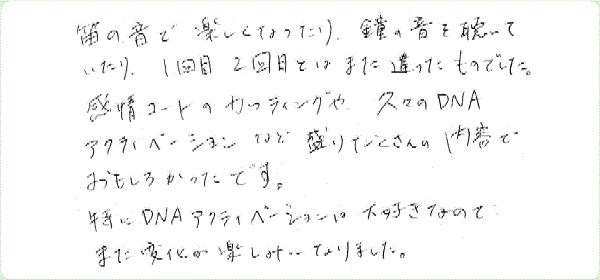 笛の音で楽しくなったり、鐘の音を聴いて
いたり、1回目2回目とはまた違ったものでした。
感情コードのカッティングや、久々のDNA
アクティベーションなど盛りだくさんの内容で
おもしろかったです。
特にDNAアクティベーションは大好きなので
また変化が楽しみになりました。